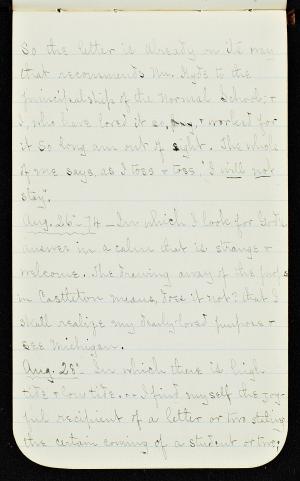 So the letter is already on its way
that recommends Mr. Hyde to the
principalship of the Normal School; +
I, who have loved it so, + worked for
it so long am out of sight. The whole
of me says, as I toss + toss, "I will not
stay".
Aug. 26"-74 - In which I look for God's
answer in a calm that is strange +
welcome. The drawing away of the
in Castleton means, does it not? that I
shall realize my dearly-loved purpose +
see Michigan.
Aug. 28" In which there is high
tide + low tide. I find myself the joy-
ful recipient of a letter or two stating
the certain coming of a student or two;